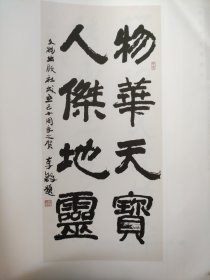 物華天寶
人傑地靈
文物出版社成立四十周年之賀 李鐸題